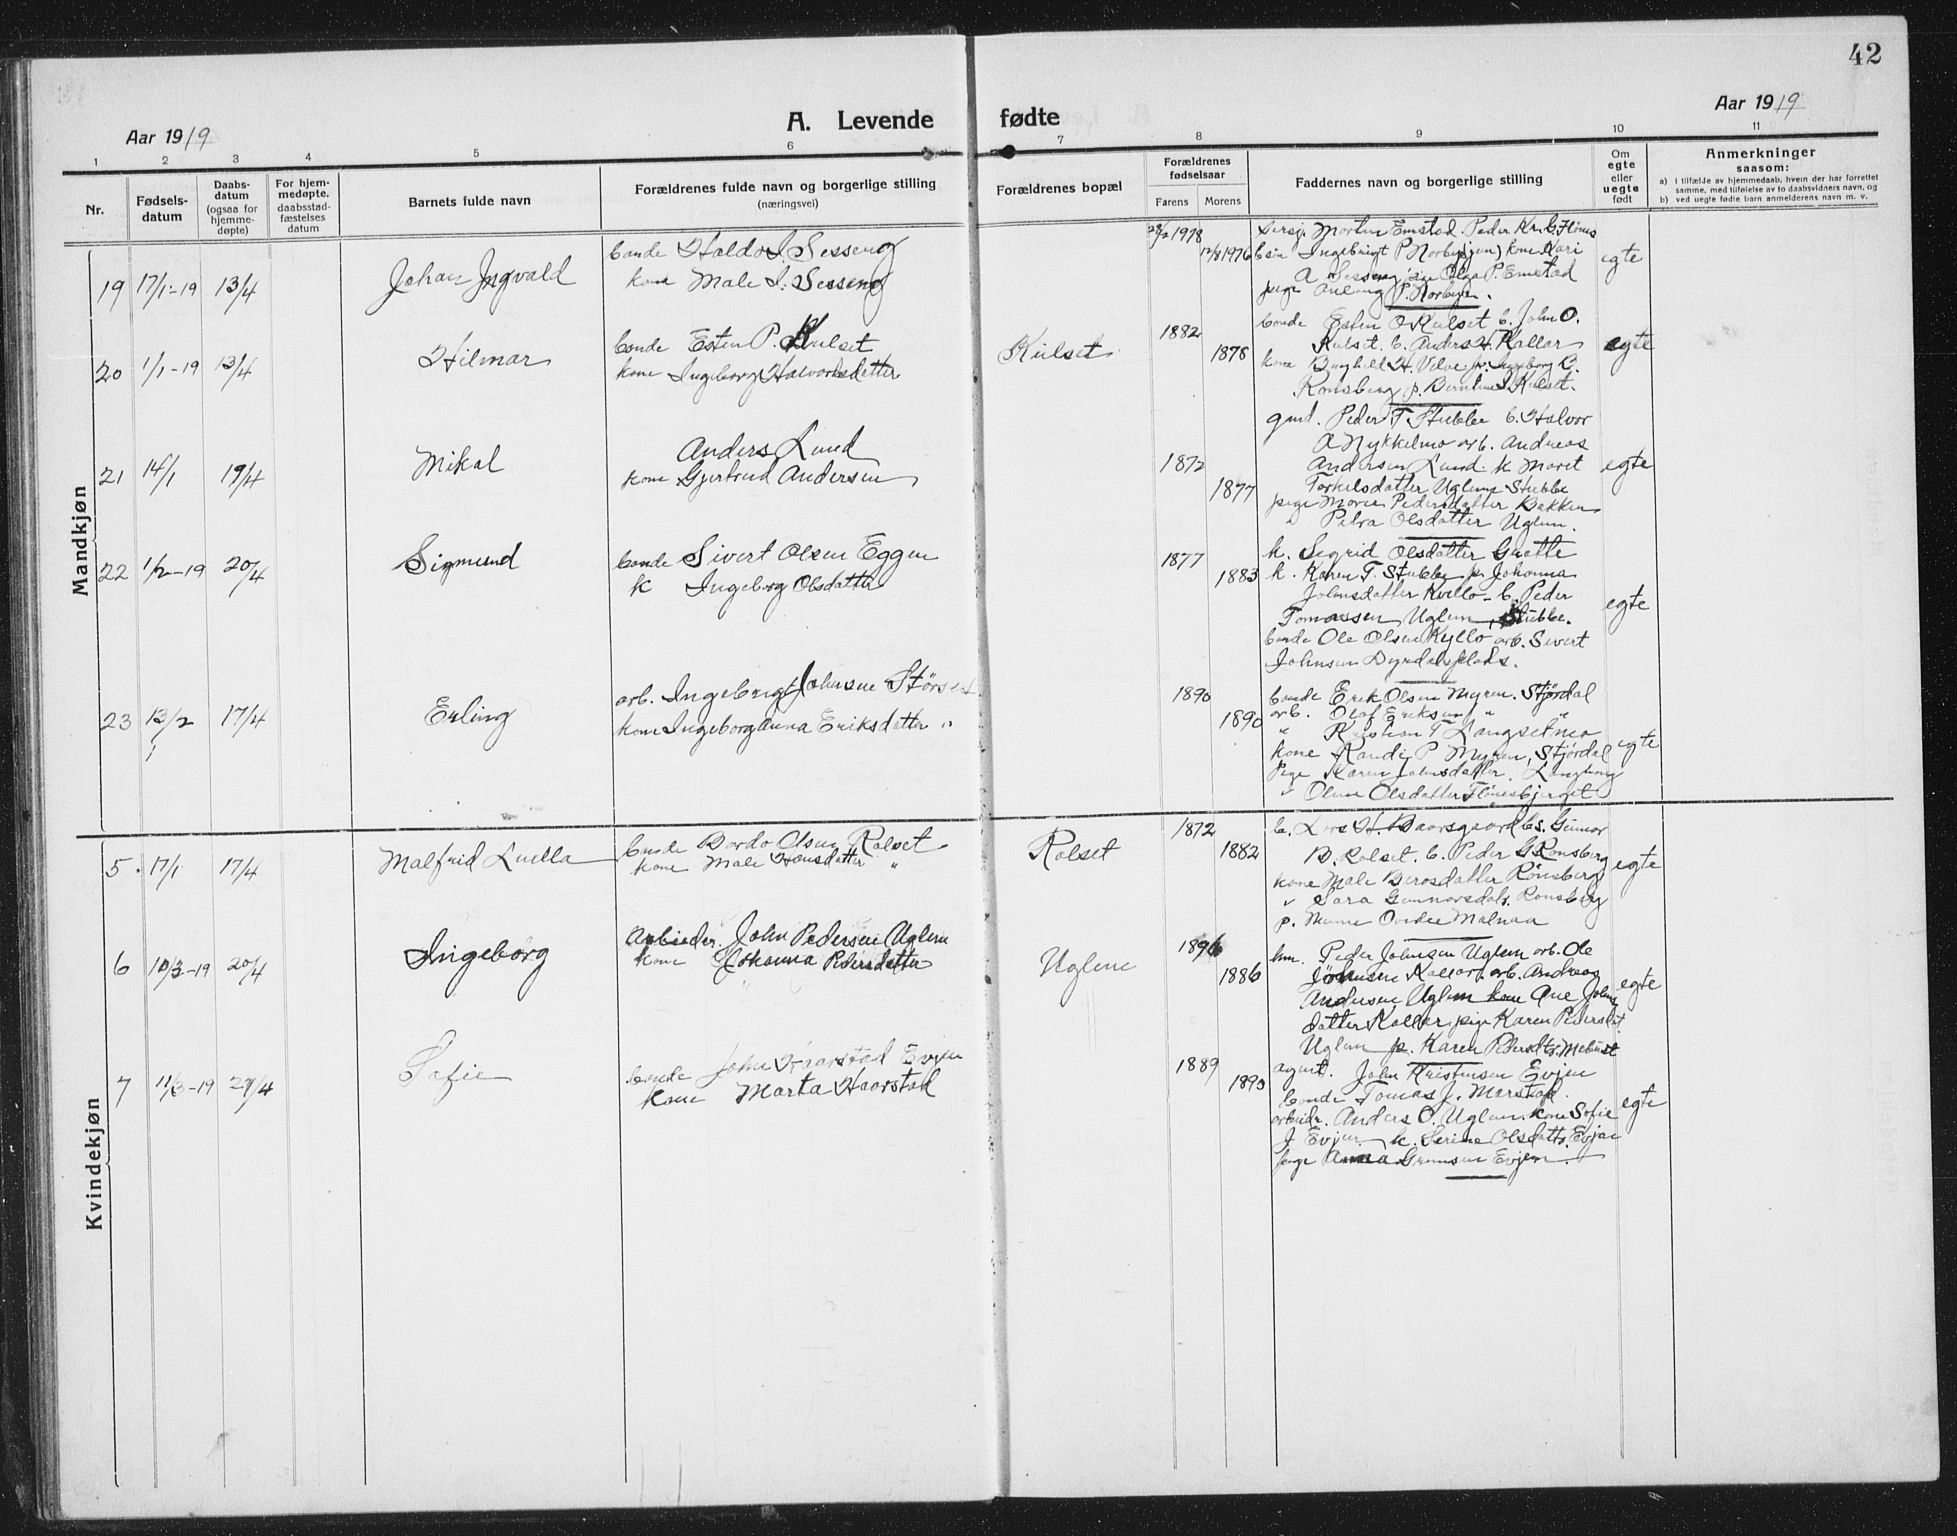 42
Aar 1919
A. Levende fødte
Aar 1919
1 2 3 4 5 6 7 8 9 10 11
Nr.
Fødsels-
datum
Daabs-
datum
(ogsaa for
hjemme-
døpte)
For hjem-
medøpte.
daabsstad-
fæstelses
datum
Barnets fulde navn
Forældrenes fulde navn og borgerlige stilling
(næringsvei)
Forældrenes bopæl
Forældrenes
fødselsaar
Farens Morens
Faddernes navn og borgerlige stilling
Om
egte
eller
uegte
født
Anmerkninger
saasom:
a) i tilfælde av hjemmedaab, hvem der har forrettet
samme, med tilføielse av to daabsvidners navn, og
b) ved uegte fødte barn anmelderens navn m. v.
Mandkjøn
19 17/1-19 13/4 Johan Ingvald
bonde Haldo I. Sesseng
kone Male I. Sesseng
egte
Morten Emstad. Peder Kr. G. Flönes
Ingebrigt P. Norbyen, kone Kari
A Sesseng, Olga P. Emstad
pige P. Norbyen.
20 1/1-19 13/4 Hilmar
bonde Esten P. Kulset
kone Ingeborg Halvorsdatter
Kulset
1882
1878
bonde Esten O Kulset b. John O.
Kulset. b. Anders H. Kallar
kone Borghild H. p. Ingeborg B.
Ronsberg p. S. Kulset.
egte
21 14/1 19/4 Mikal
Anders Lund
kone Gjertrud Andersen
1872
1877
gmd. Peder T. Stubbe b. Halvor
A Nykkelmo arb. Andreas
Andersen Lund. k Maret
Torkelsdatter Uglem Stubbe
pige Pedersdatter Bakken
" Petra Olsdatter Uglem.
egte
22 1/2-19 20/4 Sigmund
bonde Sivert Olsen Eggen
k Ingeborg Olsdatter
1877
1883
k. Sigrid Olsdatter
k. Karen T. Stubbe p. Johanna
Johnsdatter Kvello b. Peder
Tomassen Uglem, Stubbe.
bonde Ole Olsen Kyllo arb. Sivert
Johnsen Dyrdalsplads.
egte
23 13/2 17/4 Erling
arb. Ingebrigt Johnsen
kone Ingeborganna Eriksdatter "
1890
1890
bonde Erik Olsen Myren. Stjördal
arb. Olaf Eriksen " "
" Kristian T Langsetmo
kone Randi P Myren, Stjördal
Pige Karen Johnsdatter.
" Oline Olsdatter Flönesbjerget
egte
Kvindekjøn
5. 17/1 17/4 Malfrid Luella
bonde Bardo Olsen Rolset
kone Male Hansdatter "
Rolset
1872
1882
b. Lars H. Baarsgaard bs. Gunnar
B. Rolset. b. Peder G Ronsberg
kone Male Berosdatter Rönsberg
" Sara Gunnarsdatr. Ronsberg
p. Malnaa
egte
6 10/3-19 20/4 Ingeborg
Arbieder. John Pedersen Uglem
kone Johanna Pedersdatter
Uglem
1896
1886
hm. Peder Johnsen Uglem arb. Ole
Johnsen Kallar, arb. Andreas
Andersen Uglem kone Ane Johns
datter Kallar, pige Karen Pedersdat
Uglem p. Karen Pedersdtr.
egte
7 11/3-19 27/4 Sofie
bonde John Haarstad Evjen
kone Marta Haarstad
1889
1890
agent. John Kristensen Evjen
bonde Tomas J. Marstad
arbeidr. Anders O. Uglem. kone Sofie
J Evjen. k. Serine Olsdatter. Evjen
pige Anna Evjen.
egte